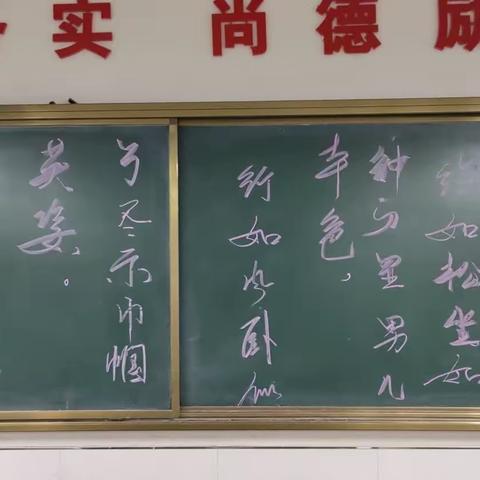 实 尚德 励
站如松坐如
钟乃男儿
本色、
行如风卧似
弓尽示巾帼
英姿。